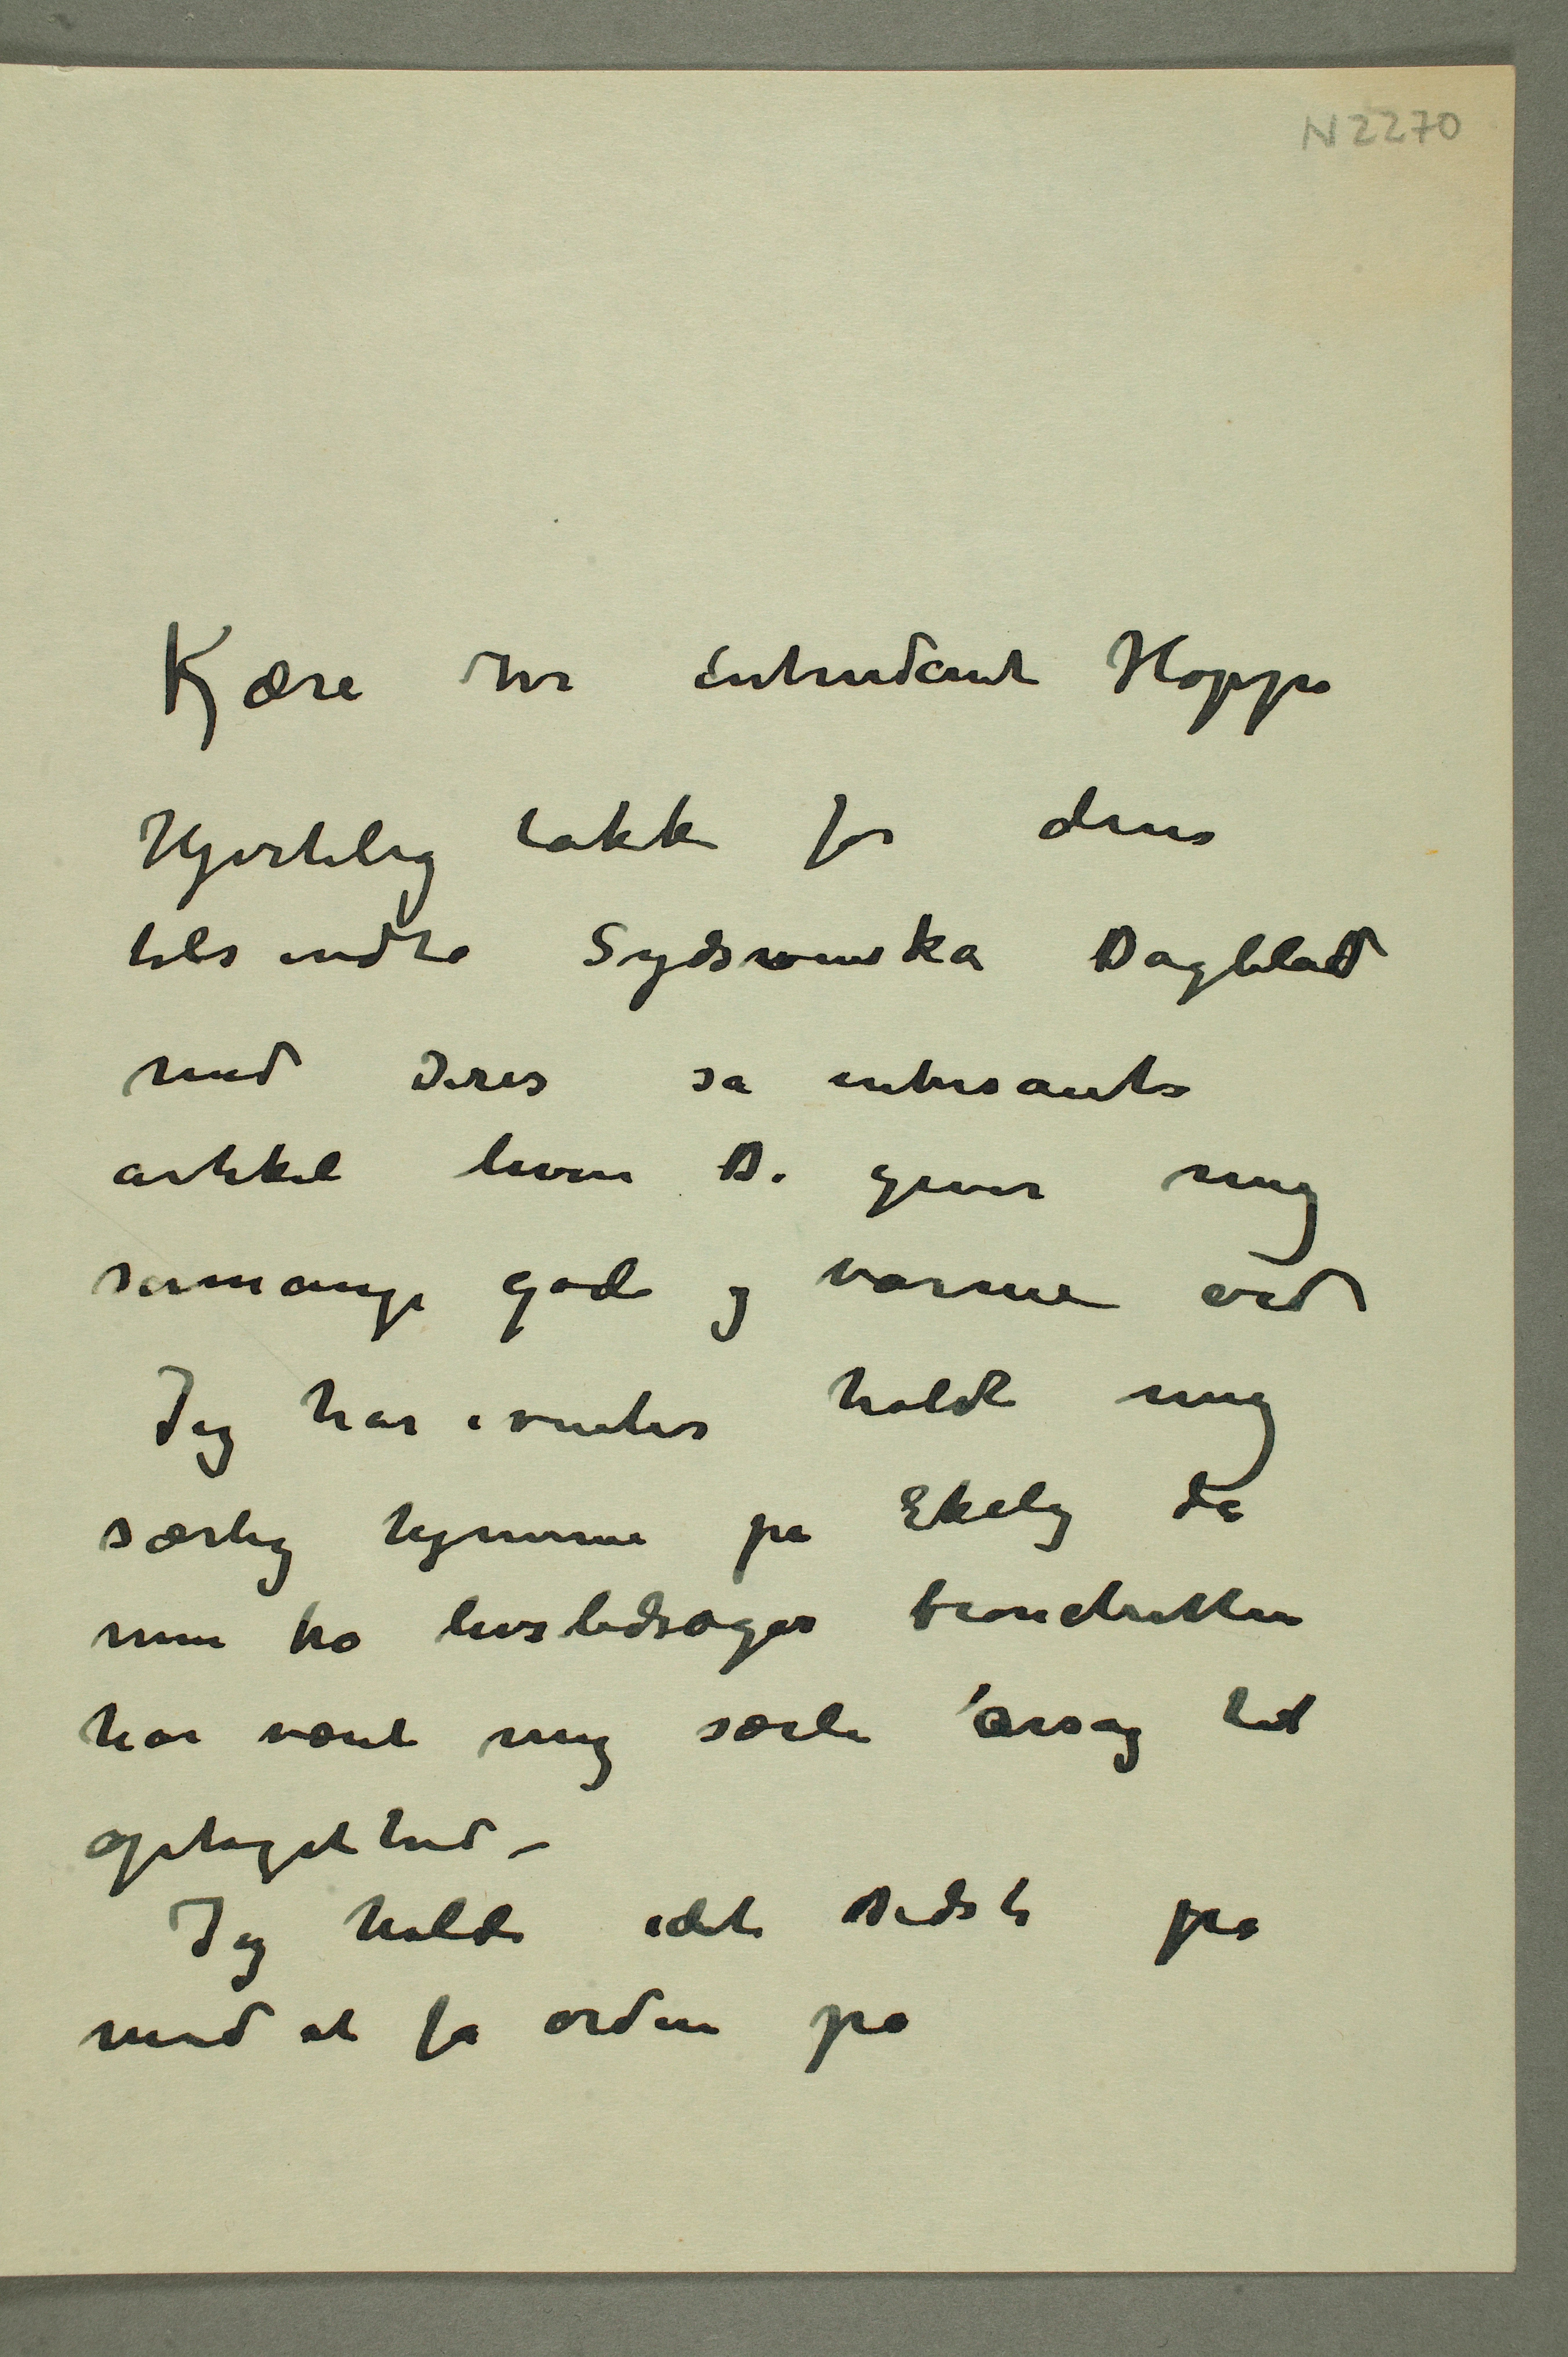 N 2270
Kjære Hr intendant Hoppe
Hjertelig takk for dens
tilsendte Sydsvenska Dagblad
med Deres så intersante
artikel hvori De giver mig
såmange gode og varme ord
Jeg har i vinter holdt mig
særlig hjemme på Ekely da
min tro livsledsager bronchitten
har været mig særli årsag til
optagethed –
Jeg holdt idet sidste på
med at få orden på